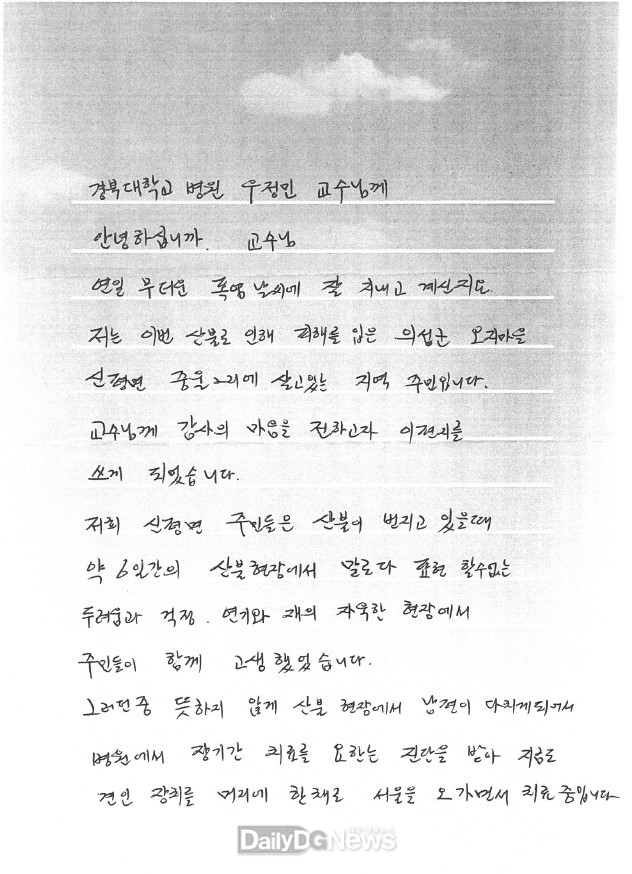 경북대학교 병원 우정민 교수님께
안녕하십니까. 교수님
연일 무더운 폭염 날씨에 잘 지내고 계신지요.
저는 이번 산불로 인해 피해를 입은 의성군 오지마을
신평면 중율2리에 살고있는 지역 주민입니다.
교수님께 감사의 마음을 전하고자 이편지를
쓰게 되었습니다.
저희 신평면 주민들은 산불이 번지고 있을때
약 6일간의 산불현장에서 말로다 표현 할수없는
두려움과 걱정. 연기와 재의 자욱한 현장에서
주민들이 함께 고생했었습니다.
그러던중 뜻하지 않게 산불 현장에서 남편이 다치게되어서
병원에서 장기간 치료를 요한는 진단을 받아 지금도
견인 장치를 머리에 한채로 서울을 오가면서 치료중입니다
DailyDGNews